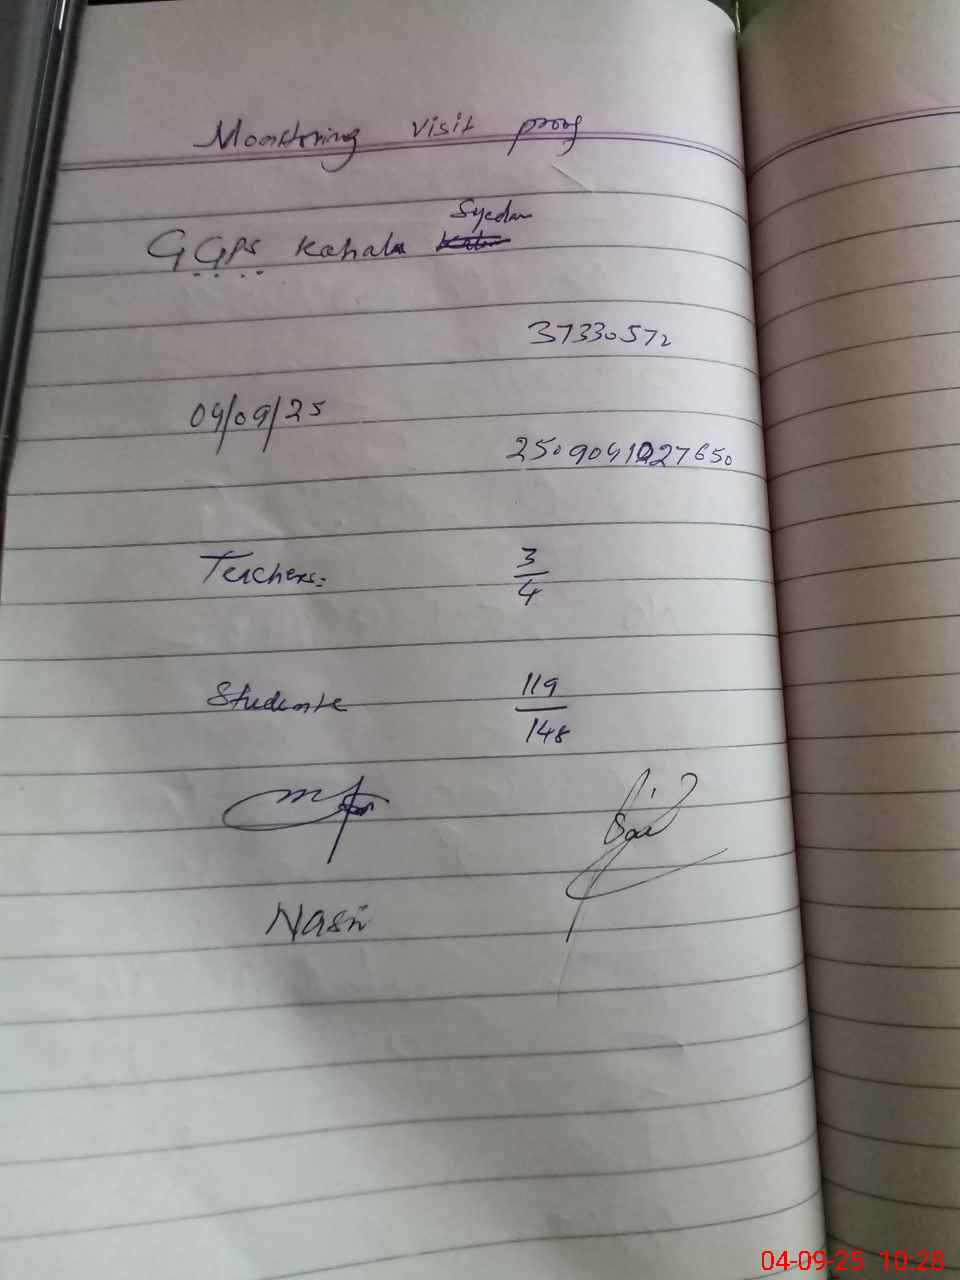 Monitoring visit proof
GGPS Kahala Syedan
37330572
04/09/25
2509041227650
Teachers:
3
4
Students
119
148
Nasir
04-09-25 10:28